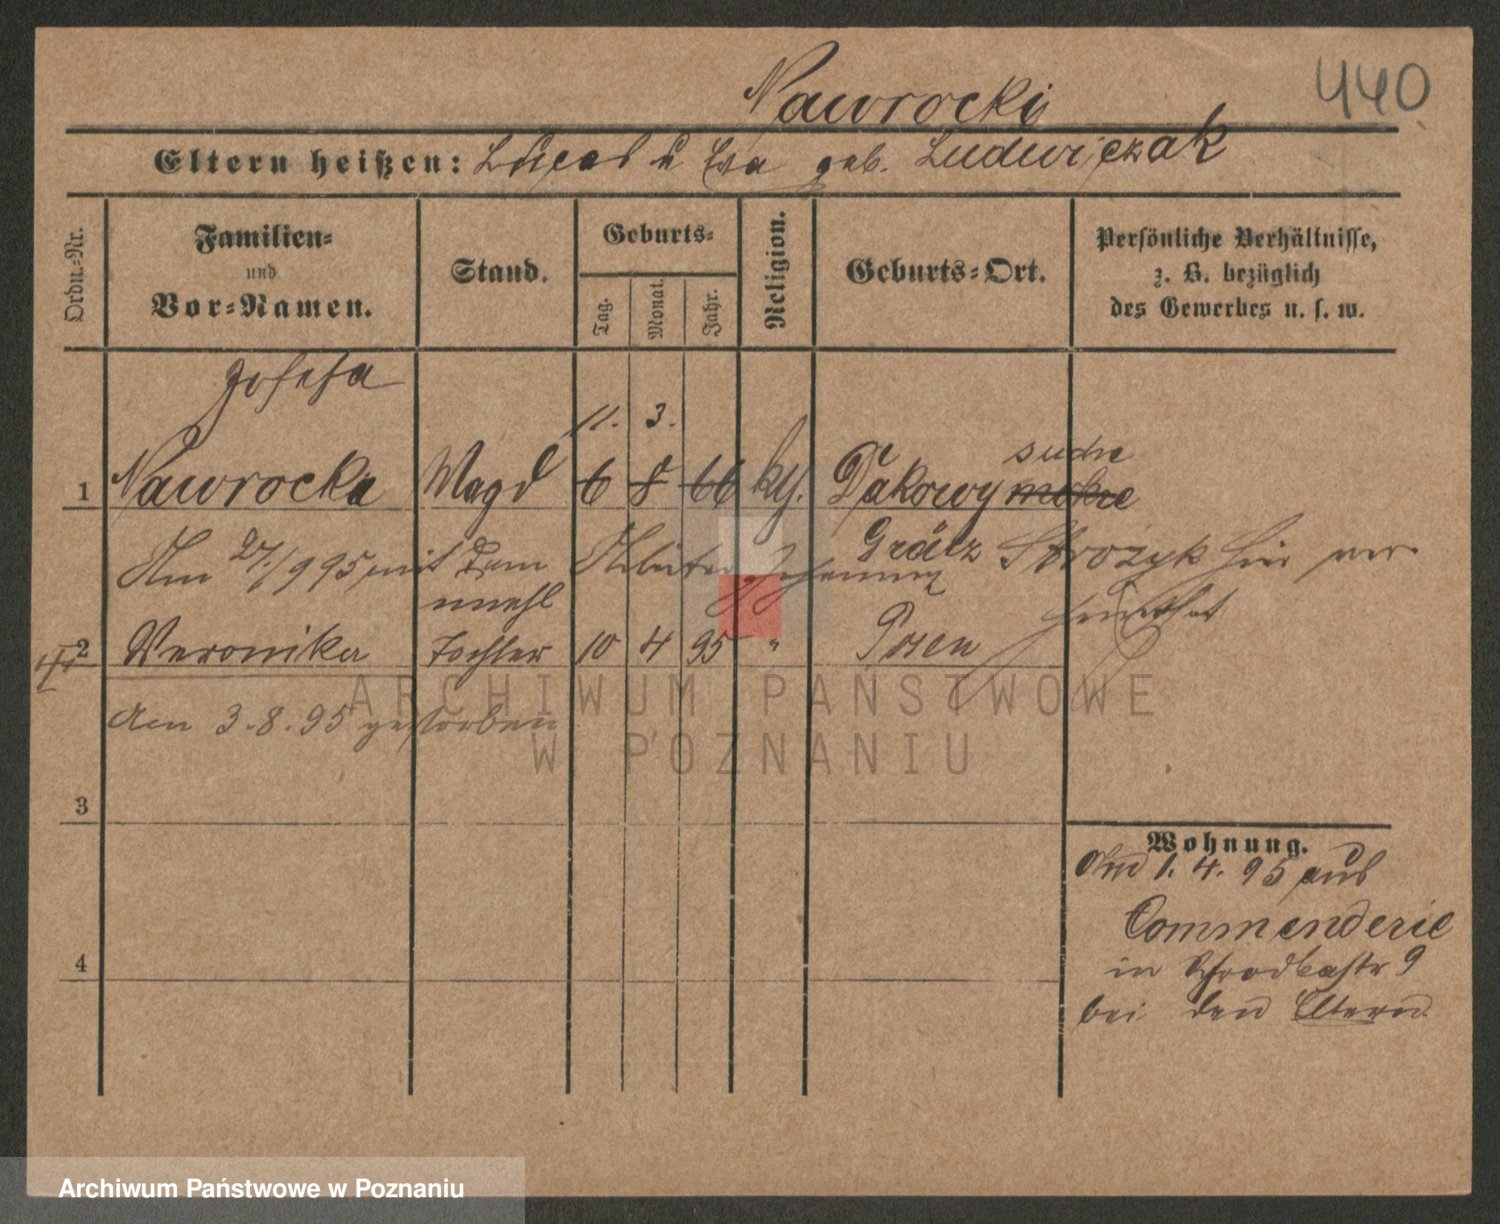 440
Nawrocki
Eltern heißen: Lucas u Eva geb. Ludwiczak
Ordn.-Nr.
Familien-
und
Vor-Namen.
Stand.
Geburts-
Tag.
Monat.
Jahr.
Religion.
Geburts-Ort.
Persönliche Verhältnisse,
z. B. bezüglich
des Gewerbes u. s. w.
Josefa
11. 3.
suche
1 Nawrocka Magd 6 8 66 kth. Dakowy mokre
Grätz
Am 27/9 95 mit dem Arbeiter Johann Strozyk hier ver-
heirathet
unehl
2 Veronika Tochter 10 4 95 " Posen
Am 3.8.95 gestorben
3
4
Wohnung.
Am 1. 4. 95 aus
Commenderie
in Schrodkastr 9
bei den Eltern.
ARCHIWUM PAŃSTWOWE
W POZNANIU
Archiwum Państwowe w Poznaniu